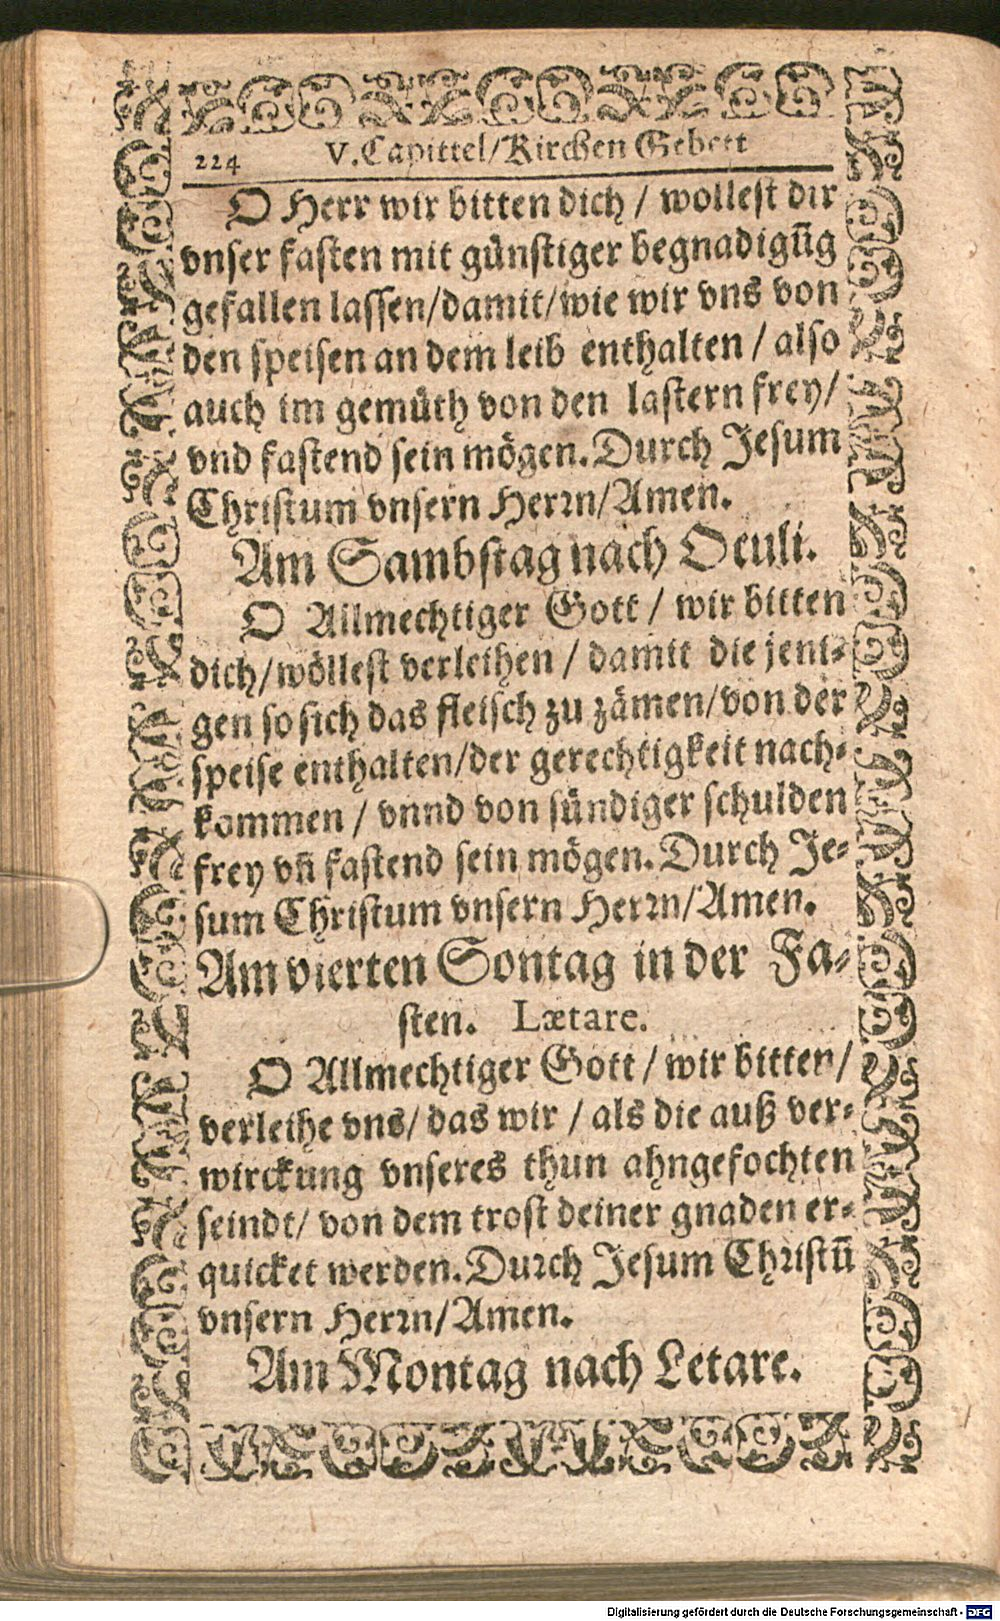 224 V. Capittel/Kirchen Gebett
O Herr wir bitten dich / wollest dir
vnser fasten mit günstiger begnadigũg
gefallen lassen/damit/wie wir vns von
den speisen an dem leib enthalten / also
auch im gemüth von den lastern frey/
vnd fastend sein mögen. Durch Jesum
Christum vnsern Herrn/Amen.
Am Sambstag nach Oculi.
O Allmechtiger Gott / wir bitten
dich/wöllest verleihen / damit die jeni-
gen so sich das fleisch zu zämen/von der
speise enthalten/der gerechtigkeit nach-
kommen / vnnd von sündiger schulden
frey vñ fastend sein mögen. Durch Je-
sum Christum vnsern Herrn/Amen.
Am vierten Sontag in der Fa-
sten. Lætare.
O Allmechtiger Gott / wir bitten/
verleihe vns/ das wir / als die auß ver-
wirckung vnseres thun ahngefochten
seindt/ von dem trost deiner gnaden er-
quicket werden. Durch Jesum Christũ
vnsern Herrn/Amen.
Am Montag nach Letare.
Digitalisierung gefördert durch die Deutsche Forschungsgemeinschaft - DFG